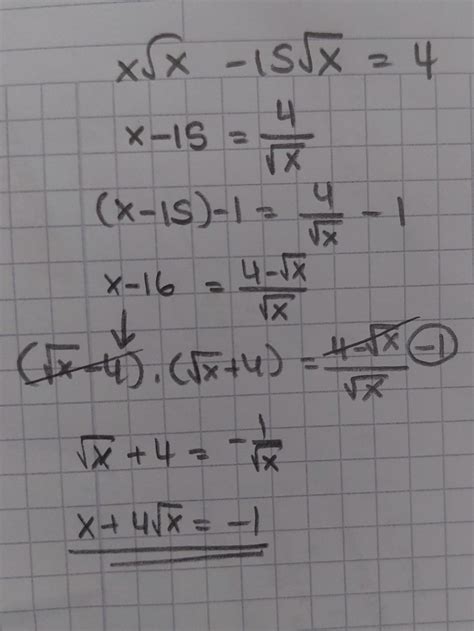 x√x - 15√x = 4
x-15 = 4/√x
(x-15)-1 = 4/√x - 1
x-16 = 4-√x/√x
(√x-4).(√x+4) = 4-√x/√x -1
√x + 4 = -1/√x
x+4√x = -1